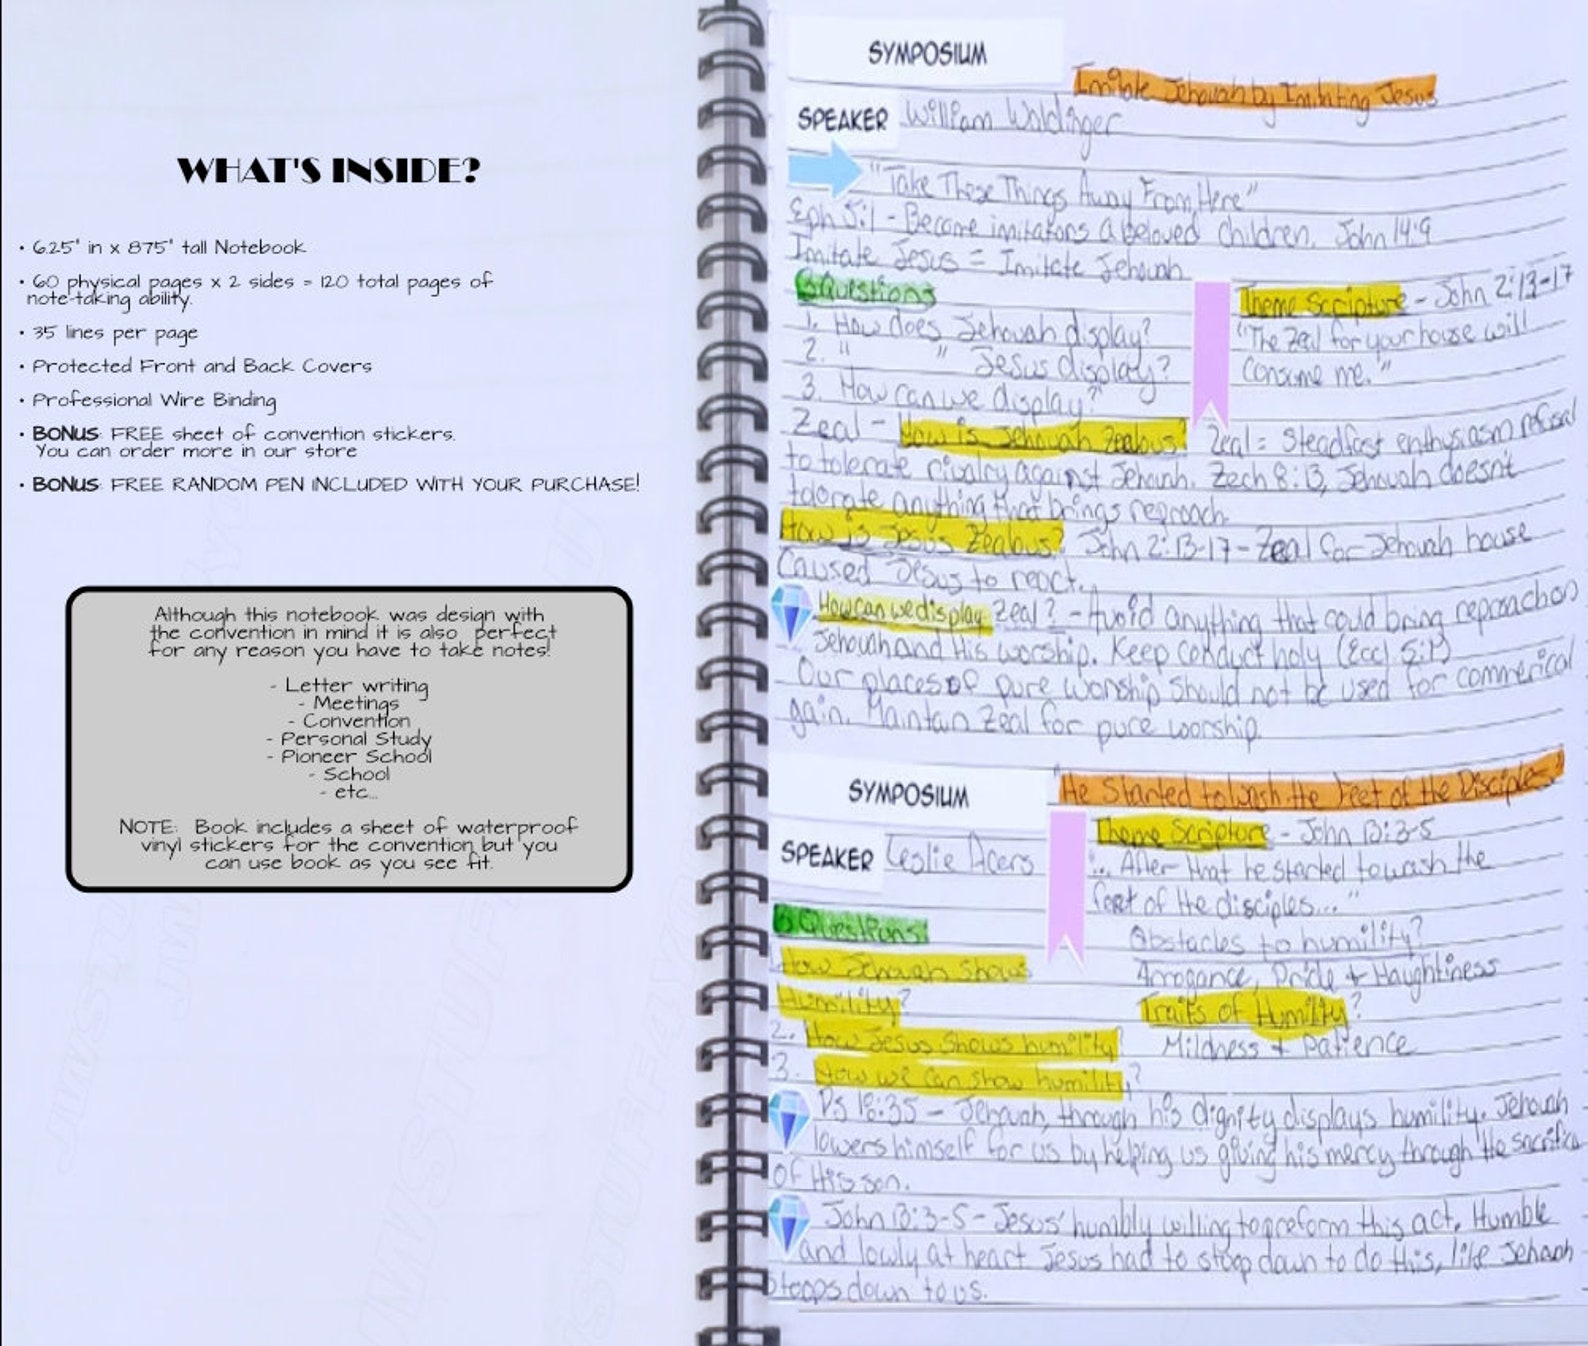 WHAT'S INSIDE?
• 6.25" in x 8.75" tall Notebook
• 60 physical pages x 2 sides = 120 total pages of
note-taking ability.
• 35 lines per page
• Protected Front and Back Covers
• Professional Wire Binding
• BONUS: FREE sheet of convention stickers.
You can order more in our store
• BONUS: FREE RANDOM PEN INCLUDED WITH YOUR PURCHASE!
Although this notebook was design with
the convention in mind it is also perfect
for any reason you have to take notes!
- Letter writing
- Meetings
- Convention
- Personal Study
- Pioneer School
- School
- etc...
NOTE: Book includes a sheet of waterproof
vinyl stickers for the convention but you
can use book as you see fit.
SYMPOSIUM
Imitate Jehovah by Imitating Jesus
SPEAKER William Waldinger
"Take These Things Away From Here"
Eph 5:1 - Become imitators a beloved children. John 14:9
Imitate Jesus = Imitate Jehovah
3 Questions
Theme Scripture - John 2:13-17
1. How does Jehovah display?
"The Zeal for your house will
2. " " Jesus display?
Consume me."
3. How can we display?
Zeal - How is Jehovah Zealous? Zeal = Steadfast enthusiasm refusal
to tolerate rivalry against Jehovah. Zech 8:13, Jehovah doesn't
tolorate anything that brings reproach.
How is Jesus Zealous? John 2:13-17 - Zeal for Jehovah house
Caused Jesus to react.
How can we display Zeal? - Avoid anything that could bring reproach on
Jehovah and His worship. Keep conduct holy (Eccl 5:1)
Our places of pure worship should not be used for commerical
gain. Maintain Zeal for pure worship.
SYMPOSIUM
"He Started to Wash the Feet of the Disciples"
Theme Scripture - John 13:3-5
SPEAKER Leslie Acers
"... After that he started to wash the
feet of the disciples..."
3 Questions
Obstacles to humility?
1. How Jehovah Shows
Arrogance, Pride + Haughtiness
Humility?
Traits of Humility?
2. How Jesus Shows humility?
Mildness + Patience
3. How we can show humility?
Ps 18:35 - Jehovah, through his dignity displays humility. Jehovah
lowers himself for us by helping us giving his mercy through the sacrifice
of His son.
John 13:3-5 - Jesus' humbly willing to preform this act. Humble
and lowly at heart Jesus had to stoop down to do this, like Jehovah
stoops down to us.